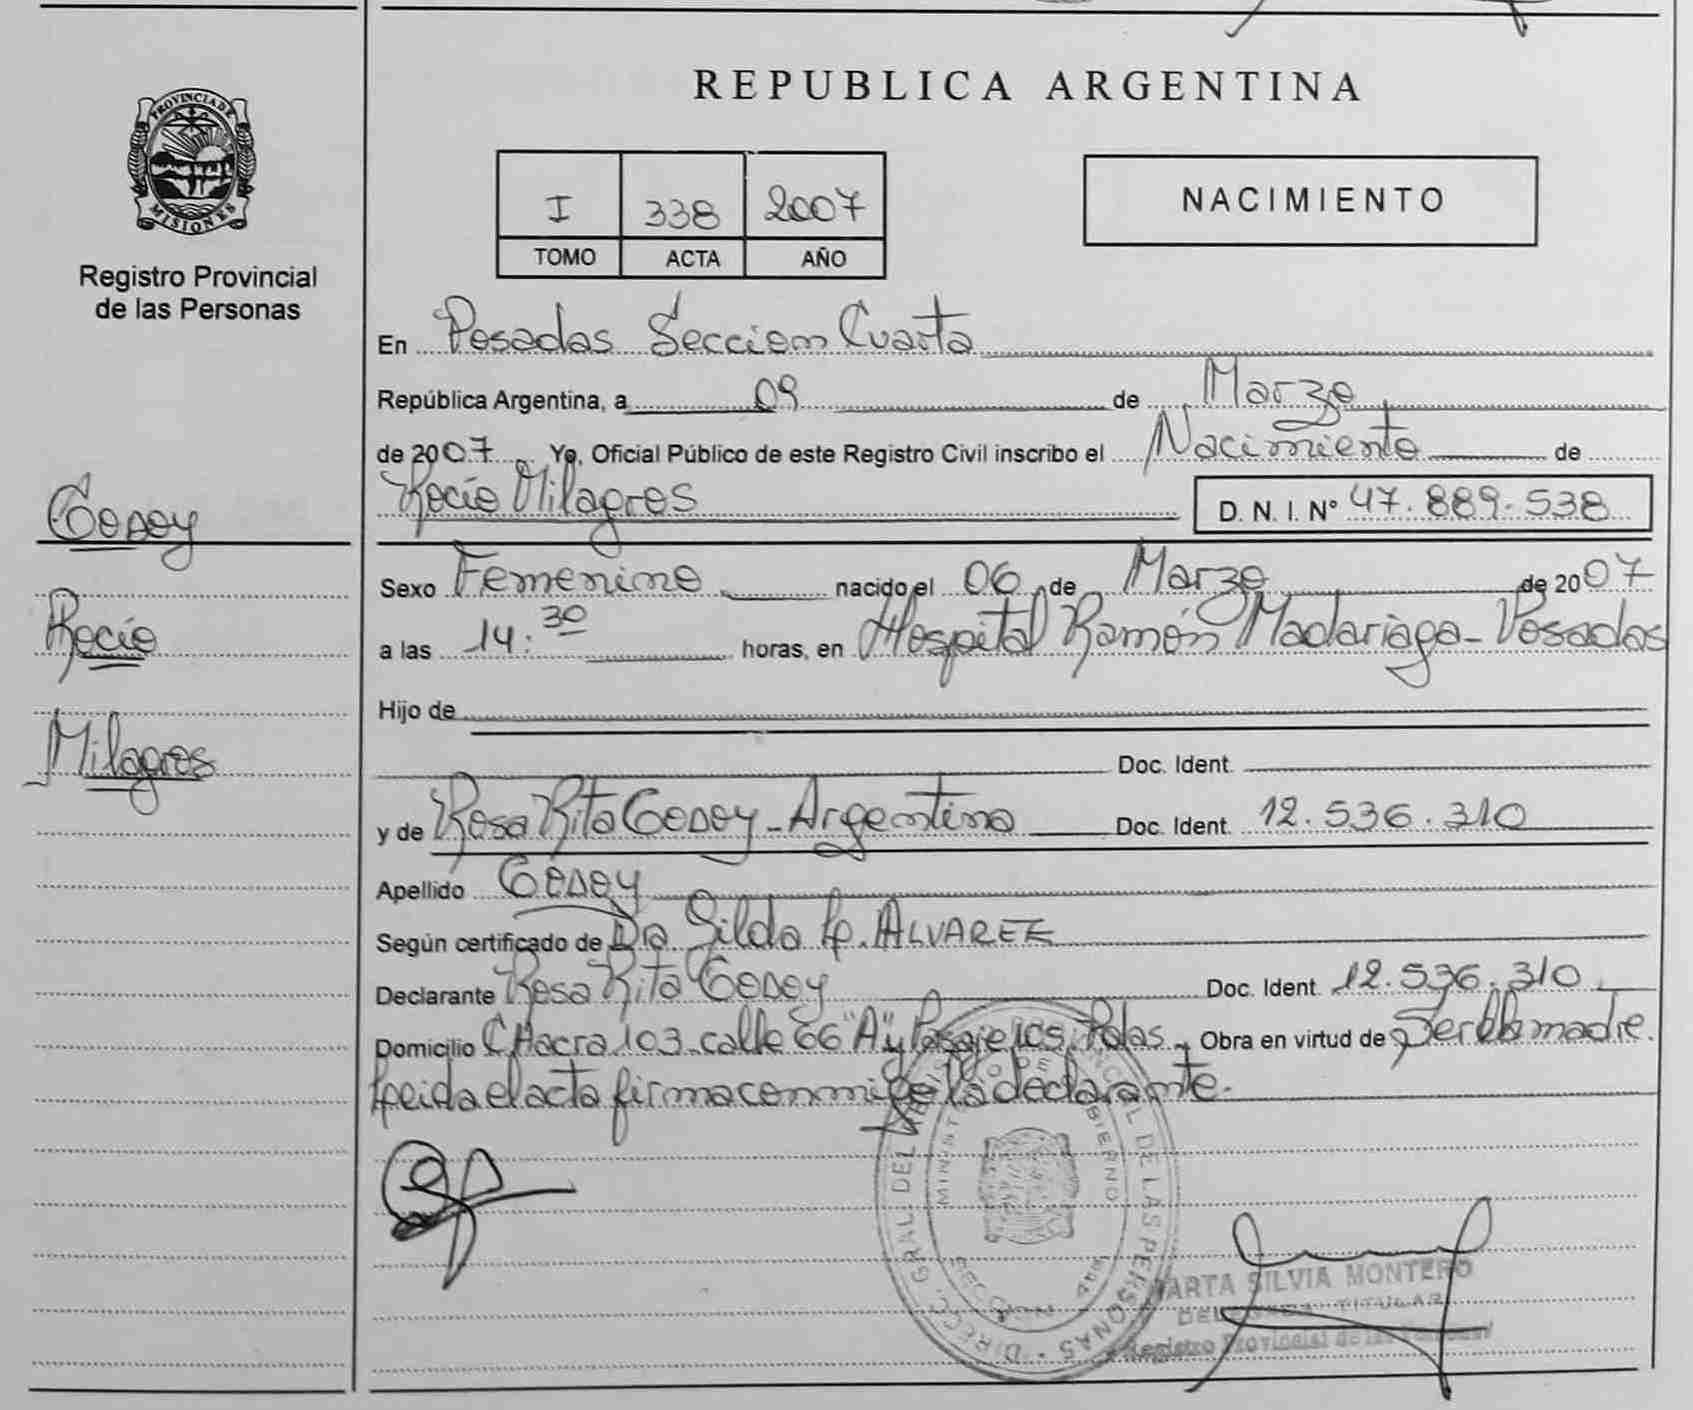 PROVINCIA DE
MISIONES
Registro Provincial
de las Personas
Godoy
Rocío
Milagros
REPUBLICA ARGENTINA
I 338 2007
TOMO ACTA AÑO
NACIMIENTO
En Posadas Seccion Cuarta
República Argentina, a 09 de Marzo
de 2007 Yo, Oficial Público de este Registro Civil inscribo el Nacimiento de
Rocío Milagros D. N. I. Nº 47.889.538
Sexo Femenino nacido el 06 de Marzo de 2007
a las 14:30 horas, en Hospital Ramón Madariaga - Posadas
Hijo de
Doc. Ident.
y de Rosa Rita Godoy - Argentina Doc. Ident. 12.536.310
Apellido Godoy
Según certificado de Dra Gilda ALVAREZ
Declarante Rosa Rita Godoy Doc. Ident. 12.536.310
Domicilio CHacra 103 calle 66 "A" y Pasaje Pdas. Obra en virtud de Ser la madre.
Leida el acta firma conmigo la declarante.
DIRECC. GRAL. DEL PROVINCIAL DE LAS PERSONAS
MINIST DE GOBIERNO
MARTA SILVIA MONTERO
DELEGADA TITULAR
Registro Provincial de las Personas